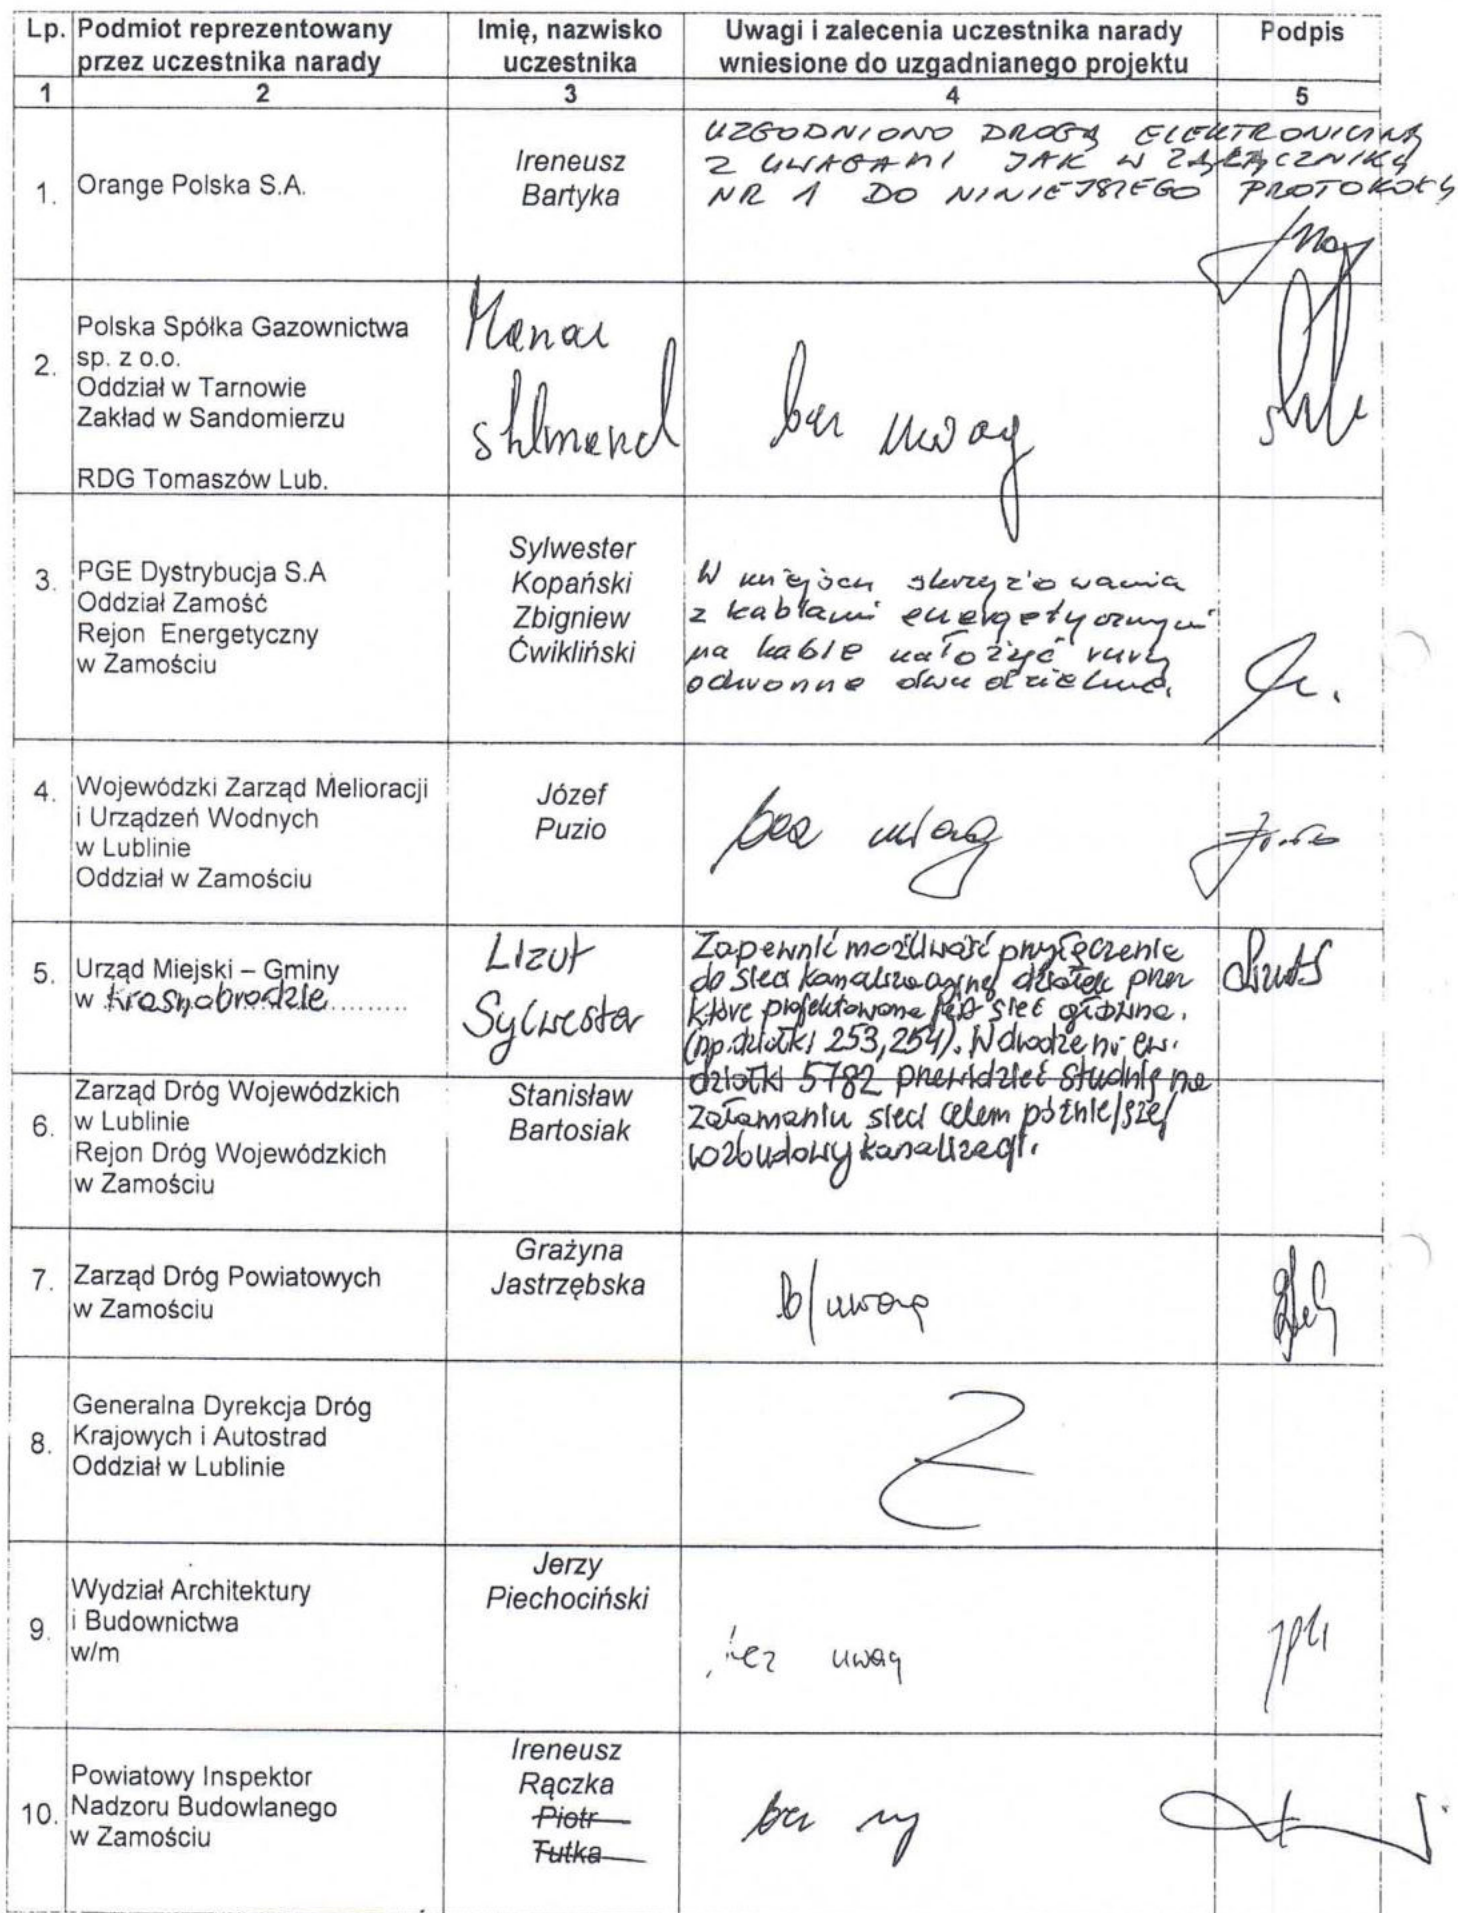 Lp. Podmiot reprezentowany przez uczestnika narady
Imię, nazwisko uczestnika
Uwagi i zalecenia uczestnika narady wniesione do uzgadnianego projektu
Podpis
1 2 3 4 5
1. Orange Polska S.A.
Ireneusz
Bartyka
UZGODNIONO DROGĄ ELEKTRONICZNĄ
Z UWAGAMI JAK W ZAŁĄCZNIKU
NR 1 DO NINIEJSZEGO PROTOKOŁU
2. Polska Spółka Gazownictwa
sp. z o.o.
Oddział w Tarnowie
Zakład w Sandomierzu
RDG Tomaszów Lub.
bez uwag
3. PGE Dystrybucja S.A
Oddział Zamość
Rejon Energetyczny
w Zamościu
Sylwester
Kopański
Zbigniew
Ćwikliński
W miejscu skrzyżowania
z kablami energetycznymi
na kable nałożyć rury
ochronne dwudzielne.
4. Wojewódzki Zarząd Melioracji
i Urządzeń Wodnych
w Lublinie
Oddział w Zamościu
Józef
Puzio
bez uwag
5. Urząd Miejski – Gminy
w Krasnobrodzie.........
Lizut
Sylwester
Zapewnić możliwość przyłączenie
do sieci kanalizacyjnej działek przez
które projektowana jest sieć główna.
(np. działki 253,254). W drodze nr ew.
działki 5782 przewidzieć studnię na
załamaniu sieci celem późniejszej
rozbudowy kanalizacji.
6. Zarząd Dróg Wojewódzkich
w Lublinie
Rejon Dróg Wojewódzkich
w Zamościu
Stanisław
Bartosiak
7. Zarząd Dróg Powiatowych
w Zamościu
Grażyna
Jastrzębska
b/uwag
8. Generalna Dyrekcja Dróg
Krajowych i Autostrad
Oddział w Lublinie
9. Wydział Architektury
i Budownictwa
w/m
Jerzy
Piechociński
bez uwag
10. Powiatowy Inspektor
Nadzoru Budowlanego
w Zamościu
Ireneusz
Rączka
Piotr
Tutka
bez